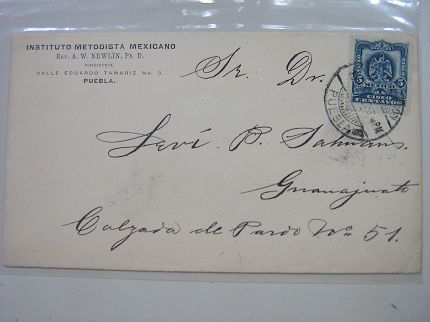 INSTITUTO METODISTA MEXICANO
Rev. A. W. NEWLIN, Ph. D.
PRESIDENTE.
CALLE EDUARDO TAMARIZ No. 5.
PUEBLA.
MEXICO
5 5
CINCO
CENTAVOS
Sr. Dr.
Leví P. Salmans.
Guanajuato
Calzada de Pardo No 51.